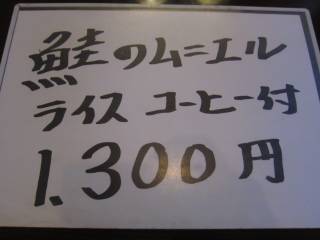 鮭のムニエル
ライス コーヒー付
1.300円